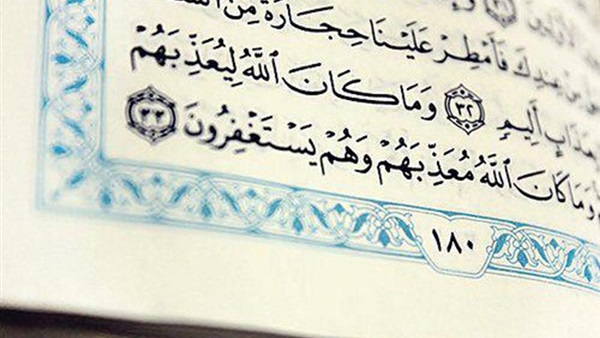 ٱلْأَوَّلِينَ ٣١
مِنْ عِندِكَ فَأَمْطِرْ عَلَيْنَا حِجَارَةً مِّنَ
بِعَذَابٍ أَلِيمٍ ٣٢ وَمَا كَانَ ٱللَّهُ لِيُعَذِّبَهُمْ
وَمَا كَانَ ٱللَّهُ مُعَذِّبَهُمْ وَهُمْ يَسْتَغْفِرُونَ ٣٣
١٨٠